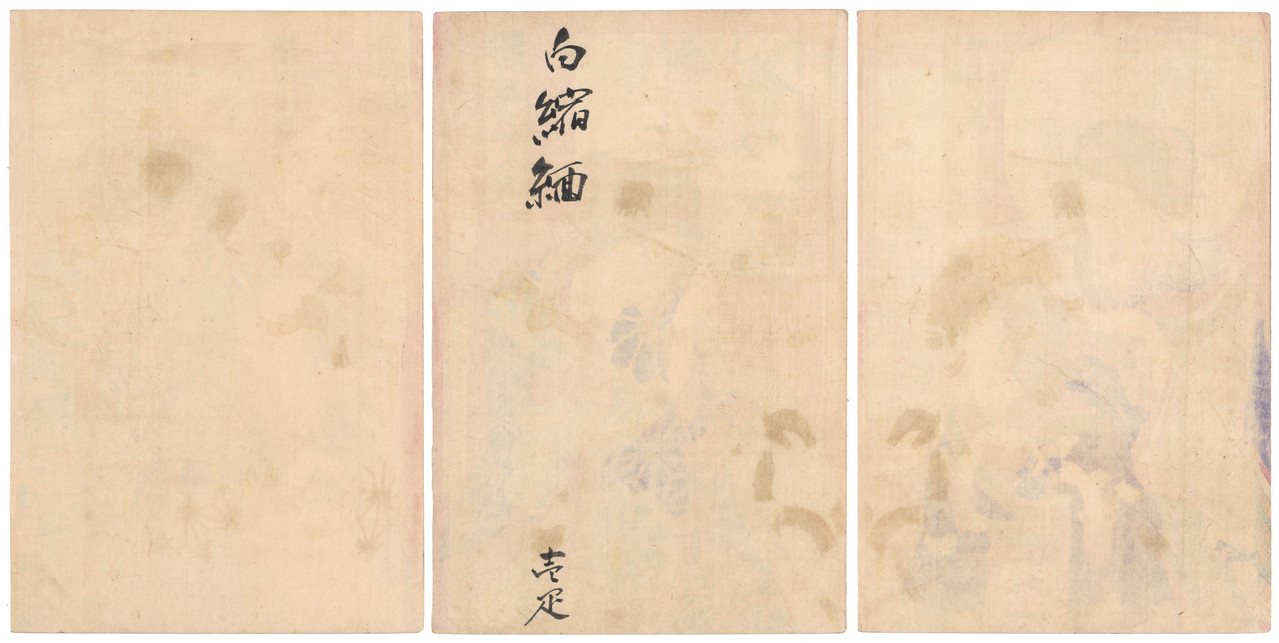 白縮緬
壱疋